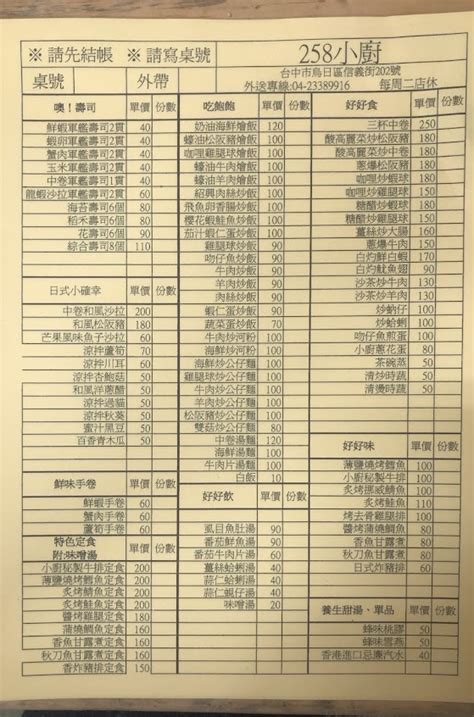 ※ 請先結帳 ※ 請寫桌號
桌號 外帶
258小廚
台中市烏日區信義街202號
外送專線:04-23389916 每周二店休
噢！壽司 單價 份數
鮮蝦軍艦壽司2貫 40
蝦卵軍艦壽司2貫 40
蟹肉軍艦壽司2貫 40
玉米軍艦壽司2貫 40
中卷軍艦壽司2貫 40
龍蝦沙拉軍艦壽司2貫 60
海苔壽司6個 80
稻禾壽司6個 80
花壽司6個 90
綜合壽司8個 110
日式小確幸 單價 份數
中卷和風沙拉 200
和風松阪豬 180
芒果風味魚子沙拉 60
涼拌蘆筍 70
涼拌川耳 60
涼拌杏鮑菇 50
和風洋蔥醋 50
涼拌過貓 50
涼拌秋葵 50
蜜汁黑豆 50
百香青木瓜 50
鮮味手卷 單價 份數
鮮蝦手卷 60
蟹肉手卷 60
蘆筍手卷 60
特色定食
附:味噌湯 單價 份數
小廚秘製牛排定食 200
薄鹽燒烤鱈魚定食 200
炙烤鯖魚定食 200
炙烤鮭魚定食 200
醬烤雞腿定食 180
蒲燒鯛魚定食 160
香魚甘露煮定食 160
秋刀魚甘露煮定食 160
香炸豬排定食 150
吃飽飽 單價 份數
奶油海鮮燴飯 120
蠔油松阪豬燴飯 100
咖哩雞腿球燴飯 100
蠔油牛肉燴飯 100
蠔油羊肉燴飯 100
紹興肉絲炒飯 100
飛魚卵香腸炒飯 100
櫻花蝦鮭魚炒飯 100
茄汁蝦仁蛋炒飯
雞腿球炒飯 90
吻仔魚炒飯 90
牛肉炒飯 90
羊肉炒飯 90
肉絲炒飯
蝦仁蛋炒飯 90
蔬菜蛋炒飯 70
牛肉炒河粉 100
海鮮炒河粉 100
海鮮炒公仔麵 100
雞腿球炒公仔麵 100
松阪豬炒公仔麵 100
雙菇炒公仔麵
中卷湯麵 120
海鮮湯麵 100
牛肉片湯麵 100
白飯 10
好好飲 單價 份數
虱目魚肚湯 90
番茄鮮魚湯 90
番茄牛肉湯 90
薑絲蛤蜊湯 40
蒜仁蛤蜊湯 40
蒜仁蜆湯 40
味噌湯 20
好好食 單價 份數
三杯中卷 250
酸高麗菜炒中卷 180
酸高麗菜炒松阪豬 180
蔥爆松阪豬 180
咖哩雞腿球 180
糖醋松阪豬 180
糖醋炒蝦球 180
糖醋炒雞球 180
薑絲炒大腸 180
蔥爆牛肉 150
白灼鮮白蝦
白灼魷魚翅
沙茶炒牛肉
沙茶炒羊肉
炒蚋仔 100
炒蛤蜊 100
吻仔魚煎蛋 100
小廚蔥花蛋 80
茶碗蒸
清炒時蔬
清燙時蔬
好好味 單價 份數
薄鹽燒烤鱈魚 100
小廚秘製牛排 100
炙烤挪威鯖魚 100
炙烤鮭魚
烤去骨雞腿排 100
醬烤蒲燒鯛魚
香魚甘露煮
秋刀魚甘露煮
日式炸豬排
養生甜湯、單品 單價 份數
蜂味桃膠 50
蜂味雪燕 50
香港進口忌廉汽水 40